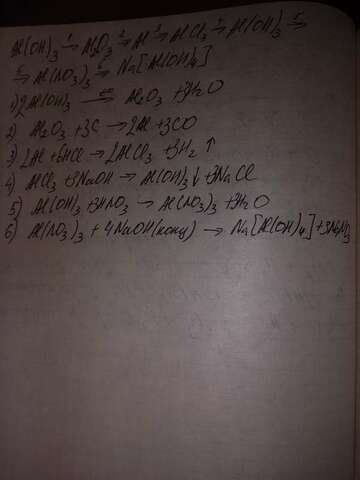 Al(OH)₃ →¹ Al₂O₃ →² Al →³ AlCl₃ →⁴ Al(OH)₃ →⁵
→⁵ Al(NO₃)₃ →⁶ Na[Al(OH)₄]
1) 2Al(OH)₃ → Al₂O₃ + 3H₂O
2) Al₂O₃ + 3C → 2Al + 3CO
3) 2Al + 6HCl → 2AlCl₃ + 3H₂ ↑
4) AlCl₃ + 3NaOH → Al(OH)₃↓ + 3NaCl
5) Al(OH)₃ + 3HNO₃ → Al(NO₃)₃ + 3H₂O
6) Al(NO₃)₃ + 4NaOH(конц) → Na[Al(OH)₄] + 3NaNO₃